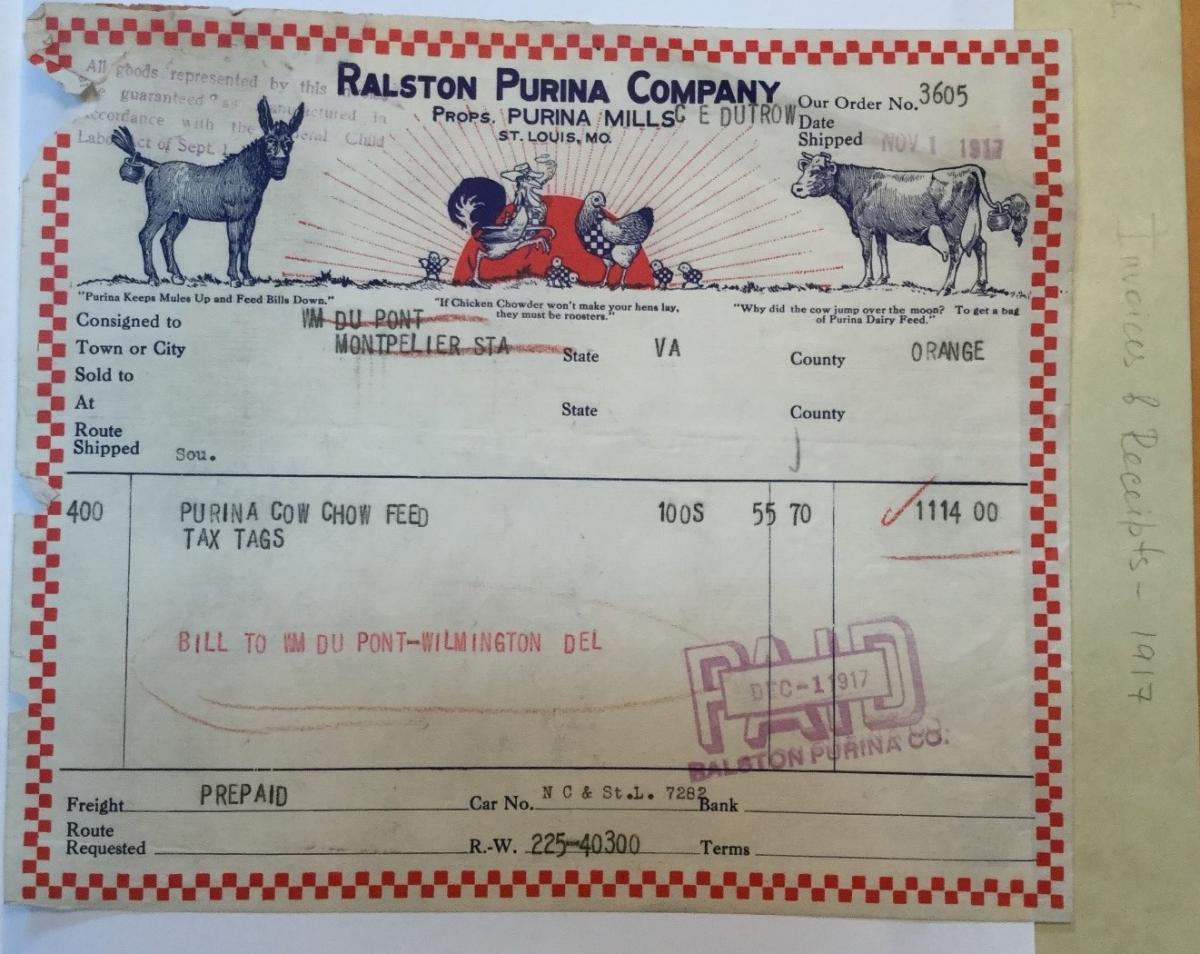 All goods represented by this
guaranteed as manufactured in
accordance with the Federal Child
Labor Act of Sept. 1
RALSTON PURINA COMPANY
PROPS. PURINA MILLS
ST. LOUIS, MO.
C E DUTROW
Our Order No. 3605
Date
Shipped NOV 1 1917
"Purina Keeps Mules Up and Feed Bills Down."
"If Chicken Chowder won't make your hens lay,
they must be roosters."
"Why did the cow jump over the moon? To get a bag
of Purina Dairy Feed."
Consigned to WM DU PONT
Town or City MONTPELIER STA State VA County ORANGE
Sold to
At State County
Route
Shipped Sou.
400 PURINA COW CHOW FEED 100S 55 70 1114 00
TAX TAGS
BILL TO WM DU PONT-WILMINGTON DEL
PAID
DEC-1 1917
RALSTON PURINA CO.
Freight PREPAID Car No. N C & St.L. 7282 Bank
Route
Requested R.-W. 225-40300 Terms
Invoices & Receipts - 1917